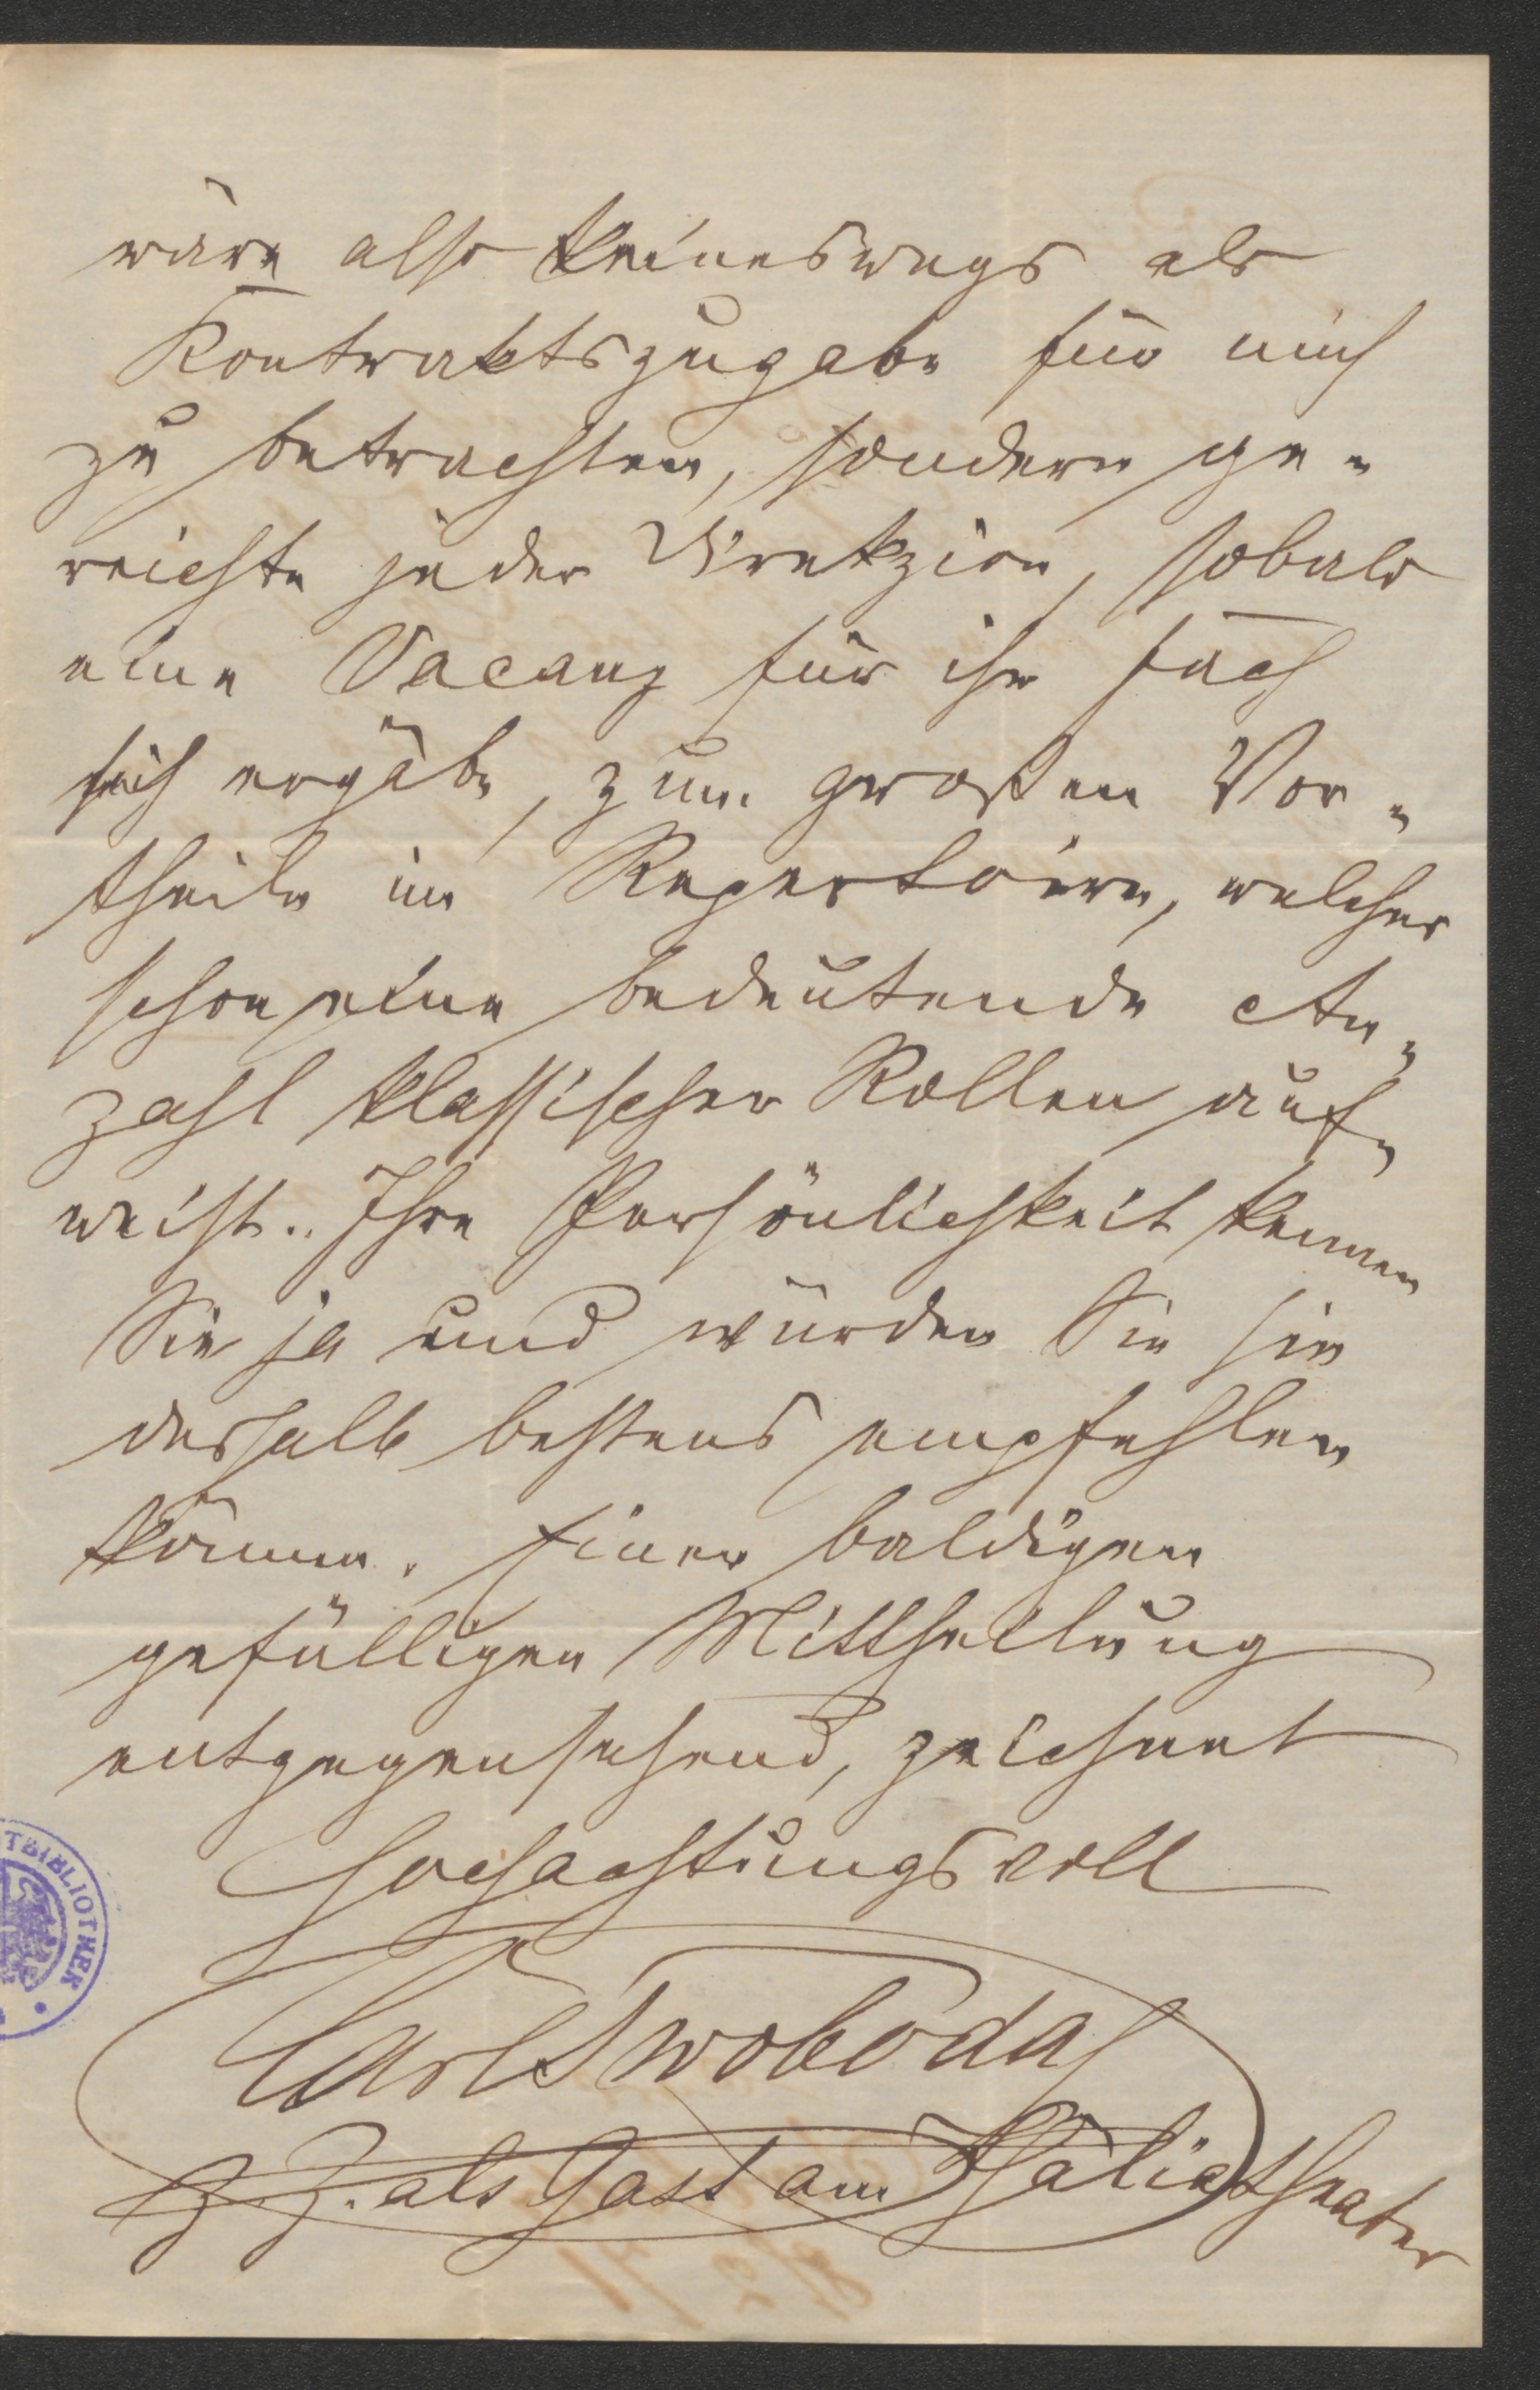 wäre also keineswegs als
Kontraktszugabe für mich
zu betrachten, sondern ge-
reichte jeder Direkzion, sobald
eine Vacanz für ihr Fach
sich ergäbe, zum großen Vor-
theile im Repertoire, welches
schon eine bedeutende An-
zahl klassischer Rollen auf-
weist. Ihre Persönlichkeit kennen
Sie ja und würden Sie sie
deshalb bestens empfehlen
können. Einer baldigen
gefälligen Mittheilung
entgegensehend, zeichnet
Hochachtungsvoll
Carl Swoboda
z. Z. als Gast am Thaliatheater
TBIBLIOTHEK